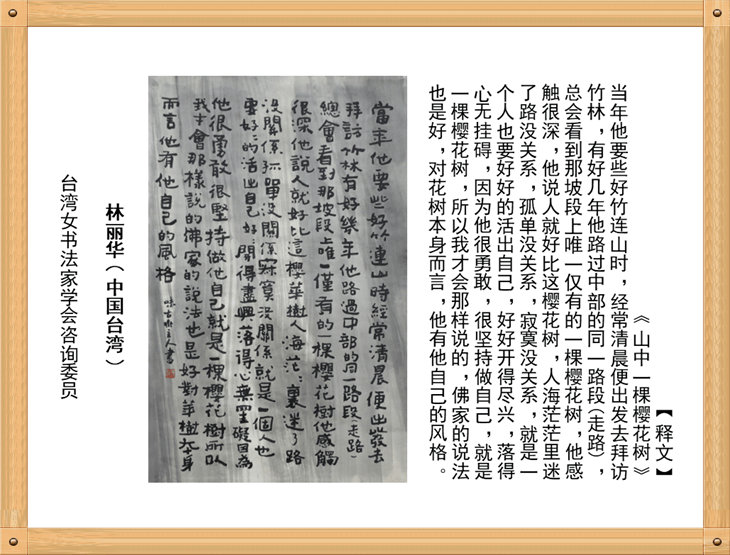 【释文】
《山中一棵樱花树》
当年他要些好竹连山时，经常清晨便出发去拜访
竹林，有好几年他路过中部的同一路段(走路)，
总会看到那坡段上唯一仅有的一棵樱花树，他感
触很深，他说人就好比这樱花树，人海茫茫里迷
了路没关系，孤单没关系，寂寞没关系，就是一
个人也要好好的活出自己，好好开得尽兴，落得
心无挂碍，因为他很勇敢，很坚持做自己，就是
一棵樱花树，所以我才会那样说的，佛家的说法
也是好，对花树本身而言，他有他自己的风格。
當年他要些好竹連山時經常清晨便出發去
拜訪竹林有好幾年他路過中部的同一路段(走路)
總會看到那坡段上唯一僅有的一棵櫻花樹他感觸
很深他說人就好比這櫻華樹人海茫〻裏迷了路
沒關係孤單沒關係寂寞沒關係就是一個人也
要好〻的活出自己好〻開得盡興落得心無罣礙因為
他很勇敢很堅持做他自己就是一棵櫻花樹所以
我才會那樣說的佛家的說法也是好對華樹本身
而言他有他自己的風格
林丽华（中国台湾）
台湾女书法家学会咨询委员